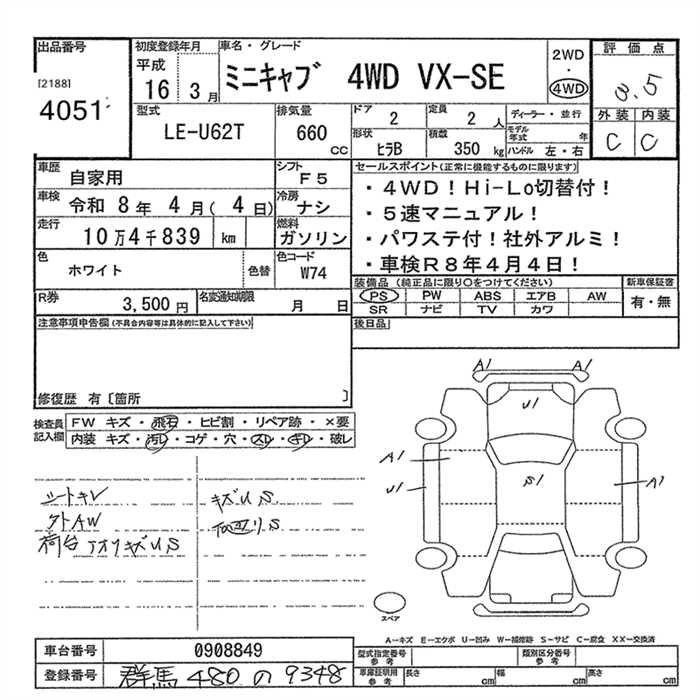 出品番号 初度登録年月 車名・グレード 2WD 評価点
[2188] 平成 ミニキャブ 4WD VX-SE ・ 3.5
4051 16 3月 4WD 外装 内装
型式 排気量 ドア 定員 ディーラー・並行 C C
LE-U62T 660 cc 2 2人 モデル年式 年
形状 ヒラB 積載 350 kg ハンドル 左・右
車歴 自家用 シフト F5 セールスポイント(正常に機能するものに限ります)
車検 令和 8年 4月( 4日) 冷房 ナシ ・4WD！Hi-Lo切替付！
走行 10万4千839 km 燃料 ガソリン ・5速マニュアル！
色 ホワイト 色替 色コード W74 ・パワステ付！社外アルミ！
・車検R8年4月4日！
R券 3,500円 名変通知期限 月 日 装備品 (純正品に限り○をつけてください) 新車保証書
PS PW ABS エアB AW 有・無
SR ナビ TV カワ
注意事項申告欄(不具合内容等は具体的に記入して下さい) 後日品
修復歴 有〔箇所 〕
検査員記入欄 FW キズ・飛石・ヒビ割・リペア跡・×要
内装 キズ・汚レ・コゲ・穴・スレ・キレ・破レ
シートキレ キズU.S.
外AW
荷台アオリキズU.S
A1 A1
U1
A1 S1 A1
U1
スペア
A－キズ E－エクボ U－凹み W－補修跡 S－サビ C－腐食 XX－交換済
車台番号 0908849 型式指定番号 参考 類別区分番号 参考
登録番号 群馬 480 の 9348 車庫証明用 参考 長さ cm 幅 cm 高さ cm